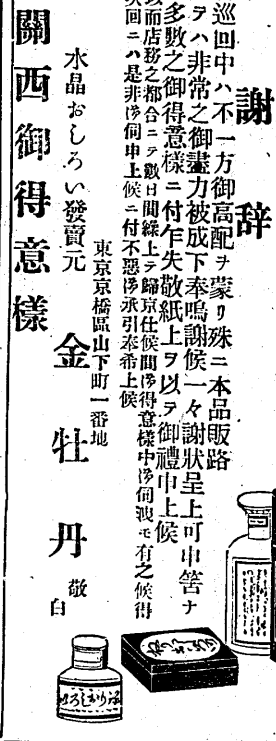 謝辞
巡回中ハ不一方御高配ヲ蒙リ殊ニ本品販路
ハ非常之御盡力被成下奉鳴謝候一々謝狀呈上可申筈ナ
多數之御得意樣ニ付乍失敬紙上ヲ以テ御禮申上候
而店務之都合ニテ數日間繰上テ歸京仕候間御得意樣中御伺洩モ有之候得
次回ニハ是非御伺申上候ニ付不惡御承引奉希上候
東京京橋區山下町一番地
水晶おしろい發賣元
金牡丹 敬白
關西御得意樣